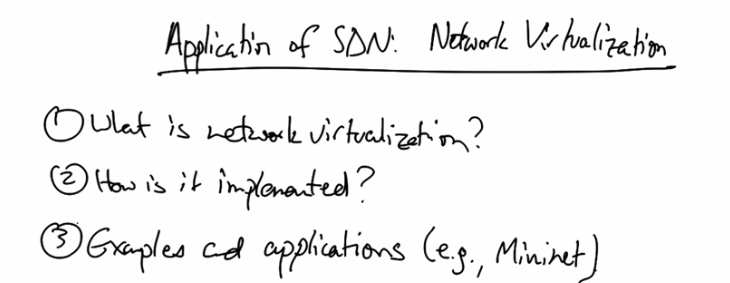 Application of SDN: Network Virtualization
① What is network virtualization?
② How is it implemented?
③ Examples and applications (e.g., Mininet)